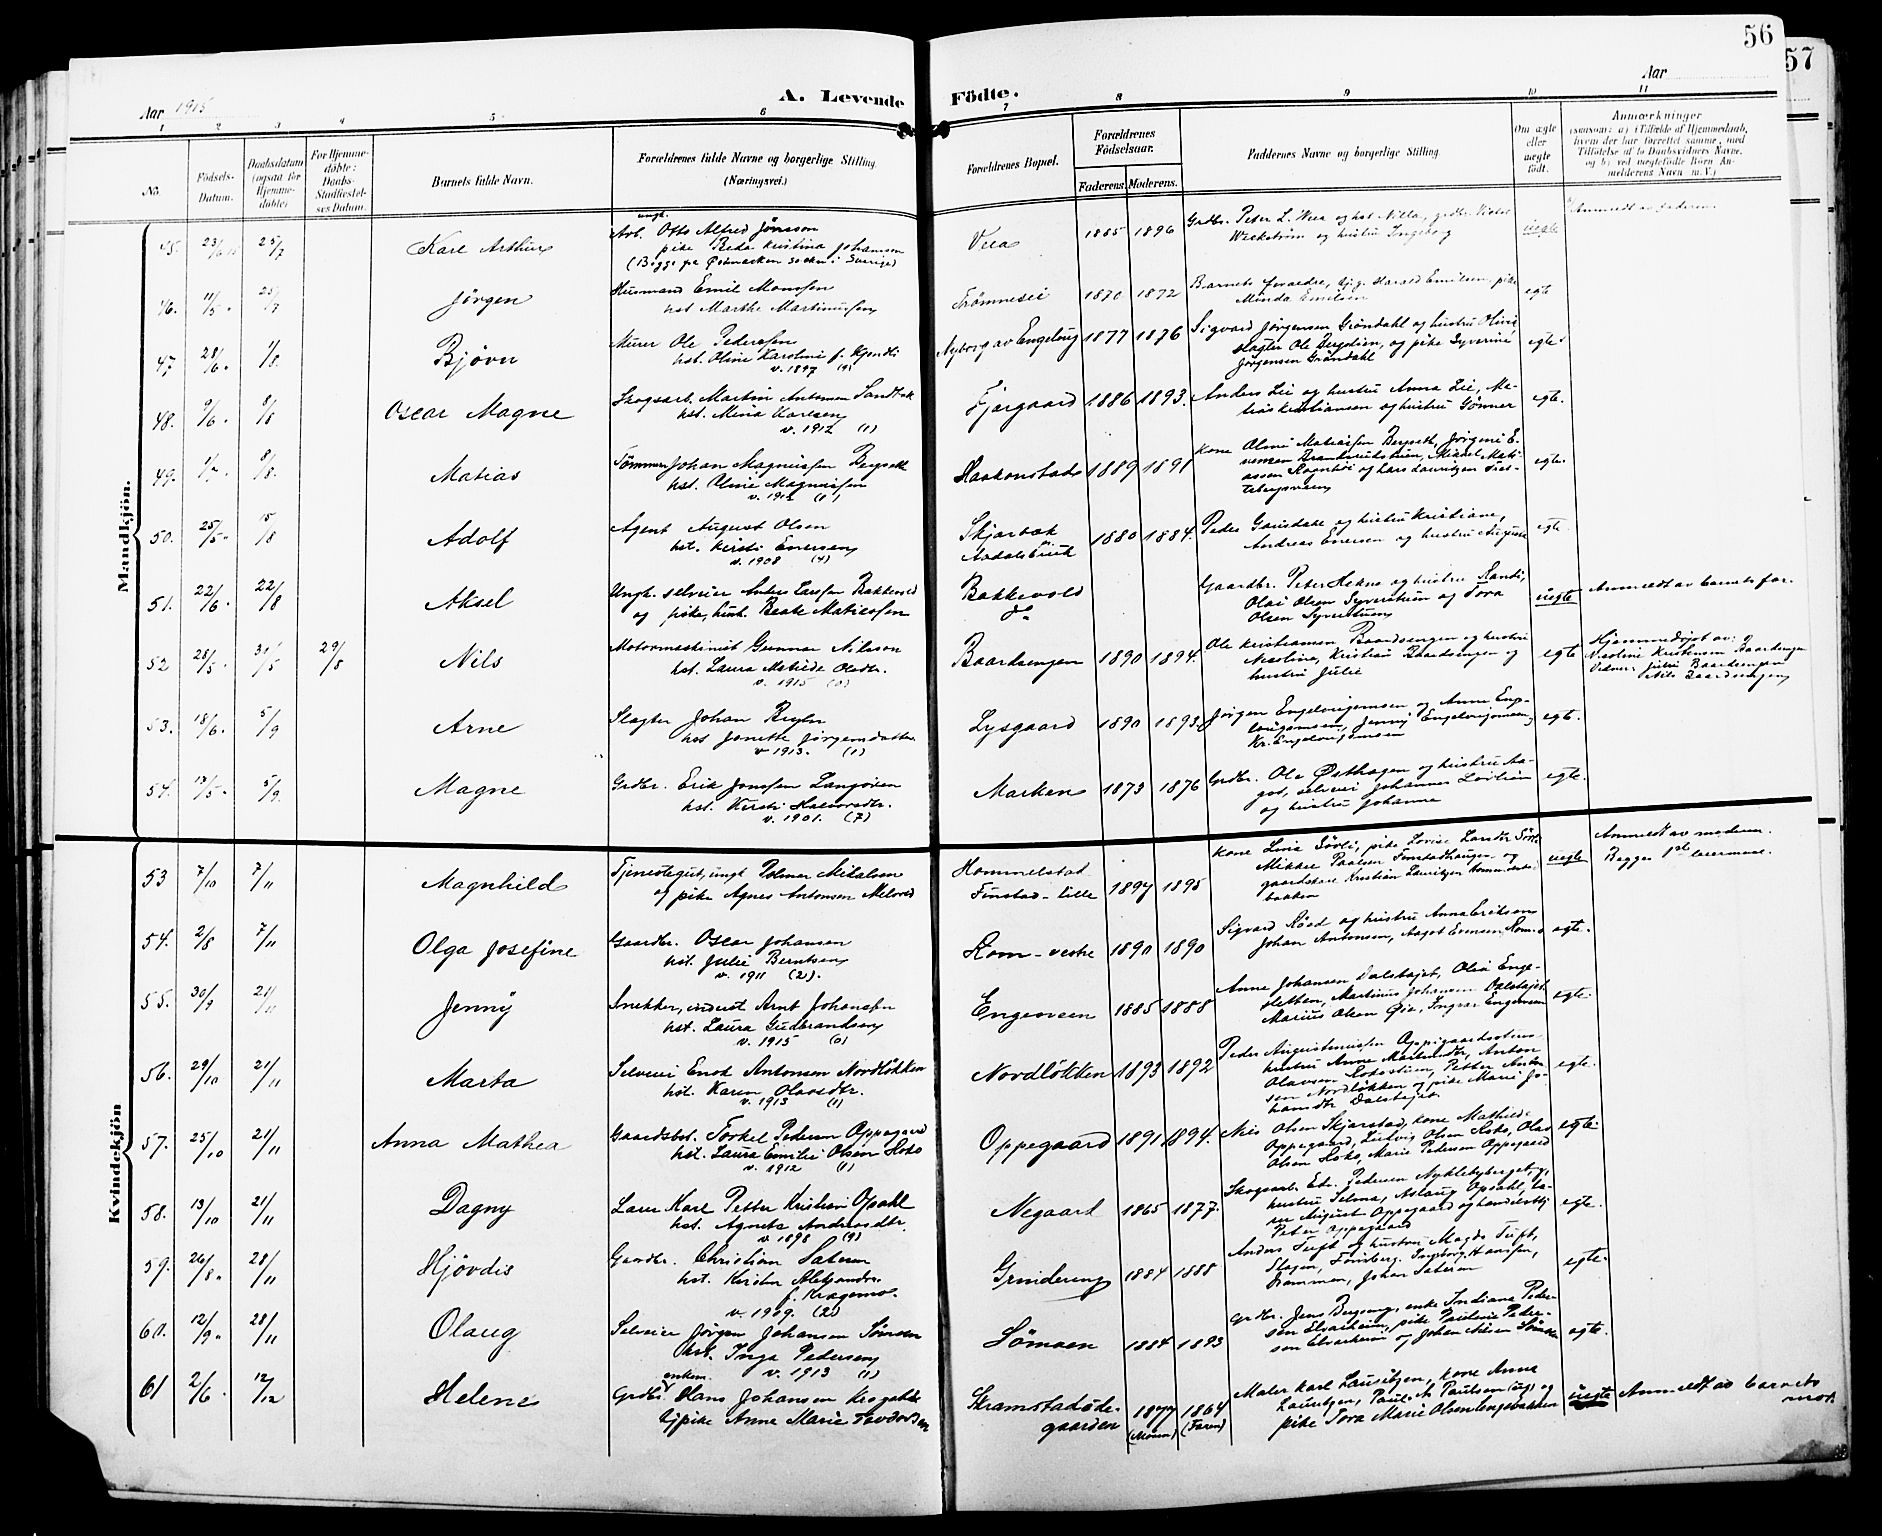 56
57
Aar 1915
A. Levende Födte.
Aar
1 2 3 4 5 6 7 8 9 10 11
No.
Födsels-
Datum.
Daabsdatum
(ogsaa for
Hjemme-
döbte)
For Hjemme-
döbte:
Daabs-
Stadfæstel-
ses Datum.
Barnets fulde Navn.
Forældrenes fulde Navne og borgerlige Stilling.
(Næringsvei.)
Forældrenes Bopæl.
Forældrenes
Födselsaar.
Faderens. Moderens.
Faddernes Navne og borgerlige Stilling.
Om ægte
eller
uægte
födt.
Anmærkninger
(saasom: a) i Tilfælde af Hjemmedaab,
hvem der har forrettet samme, med
Tilföielse af to Daabsvidners Navne,
og b) ved uægtefödte Börn An-
melderens Navn m. V.)
Mandkjön.
45. 23/6 15 25/7 Karl Arthur
ungk.
Arb. Otto Alfred Jönsson
pike Beda Kristina Johanson
(Begge fra Östmarken sockn i Sverige)
Vea 1885 1896
Grdbr. Peter L. Vea og hst Nilla, grdbr.
Wickström og hustru Ingeborg
uegte
Anmeldt av faderen
46. 11/5 25/7 Jörgen
Husmand Emil Monssen
hst Marthe Martinussen
Trömnesei 1870 1872
Barnets forældre, Harald Emilsen, pike
Minda Emilsen
egte
47. 28/6 1/8 Bjövn
Murer Ole Pedersen
hst. Oline Karoline f. Kjendli
v. 1897 (9)
Nyborg av Engelaug 1877 1876
Sigvard Jörgensen Gröndahl og hustru
slagter Ole Bergstien, og pike Syverine
Jörgensen Gröndahl
egte
48. 9/6 8/8 Oscar Magne
Skogsarb. Martin Antonsen Sandbak
hst. Mina Karlsen
v. 1912 (1)
Fjærgaard 1886 1893.
Anders Lie og hustru Anna Lie, Ma-
tias Kristiansen og hustru Gönner
egte.
49. 1/7 8/8. Matias
Tömmerm Johan Magnussen Bergseth
hst. Oline Magnussen
v. 1912 (1)
Haakonstad 1889 1891
Kone Oline Matiassen Bergseth, Jörgine E-
vensen Mikael Mati-
assen og Lars Lauritzen
egte.
50. 25/5 15/8 Adolf
Agent August Olsen
hst. Kirsti Enersen
v. 1908 (4)
Skjærbak
Aadalsbruk
1880 1884.
Peder Gausdale og hustru Kristiane,
Andreas Enersen og hustru Auguste
egte.
51. 22/6 22/8 Aksel
Ungk. selveier Anders Larsen Bakkevold
og pike, hush. Beate Matiassen
Bakkevold
do
Gaardbr. Peter og hustru Randi,
Olai Olsen Syverstuen og Tora
Olsen Syverstuen
uegte
Anmeldt av barnets far.
52 28/5 31/5 29/8 Nils
Motormaskinist Gunnar Nilsson
hst. Laura Matilde Olsdtr.
v. 1915 (0)
Baardsengen 1890 1894.
Ole Kristiansen Baardsengen og hustru
Nicoline, Kristian Baardsengen og
hustru Julie
egte
Hjemmedöpt av:
Nicoline Kristiansen Baardsengen
Vidner: Julie Baardsengen
Nils Baardsengen
53. 18/6. 5/9 Arne
Slagter Johan Bryhn
hst Jonette Jörgensdatter
v 1913. (1)
Lysgaard 1890 1893
Jörgen Engelaugsmoen og Anne Eng-
laugsmoen, Jenny Engelaugsmoen,
Kr. Engelaugsmoen
egte.
54. 13/5 5/9 Magne
Grdbr. Erik Jonssen Langöien
hst. Kirsti Halvorsdtr.
v. 1901. (7)
Marken 1873 1876
Grdbr. Ole Östhagen og hustru Aa-
got, selveier Johannes
og hustru Johanne
egte.
Kvindekjön
53 7/10 7/11 Magnhild
Tjenestegut, ungk Palmer Mikalsen
og pike Agnes Antonsen Melvold
Hommelstad
Finstad-lille
1897 1895
Kone Lina Sörli, pike Lovise Sörli
Mikkel Paulsen Finstadhaugen og
gaardskarl Kristian Lauritzen
bakken
uegte
Anmeldt av moderen.
Begges 1ste leiermaal.
54. 2/8 7/11 Olga Josefine
Gaardbr. Oscar Johansen
hst. Julie Berntsen
v. 1911 (2).
Rom-vestre 1890 1890
Sigvard Röed og hustru Anna Eriksen
Johan Antonsen, Aagot Evensen Rom.
egte.
55. 30/9 21/11 Jenny
Snekker, inderst Arnt Johansen
hst. Laura Gudbrandsen
v. 1915 (0)
Engesveen 1885 1888
Anne Johansen Dalstöjet, Olia Enge-
sletten, Martinus Johansen Dalstöjet
Marius Olsen Öie, Ingvar Engesveen
egte.
56. 29/10 21/11 Marta
Selveier Enok Antonsen Nordlökken
hst. Karen Olavsdtr.
v. 1913 (1)
Nordlökken 1893 1892
Peder Augustinussen Oppegaardsstuen
hustru Anne Martinsdtr, Anton
Olavsen Petter Anton-
sen Nordlökken og pike Marie Jo-
hansdtr Dalstöjet
egte.
57. 25/10 21/11 Anna Mathea
Gaardsbst. Torkel Pedersen Oppegaard
hst. Laura Emilie Olsen Hoko
v. 1912 (1)
Oppegaard 1891 1894.
Nils Olsen Skjærstad, kone Mathilde
Oppegaard, Ludvig Olsen Hoko, Olav
Olsen Hoko, Marie Pedersen Oppegaard
egte.
58. 13/10 21/11 Dagny
Lærer Karl Petter Kristian Opsahl
hst. Agneta Andreasdtr.
v. 1898 (9)
Negaard 1865 1877.
Skogsarb. Edv. Pedersen Nyklebyberget, og
hustru Selma, Aslaug Opsahl, læ-
rer August Oppegaard og handelsbtj
Peter Oppegaard
egte.
59. 26/8 28/11 Hjövdis
Gaardbr. Christian Sæteren
hst. Kirsten Aleksandra
f. Kragemo.
v. 1909. (2)
Grindereng 1884 1888
Anders Tuft og hustru Magda Tuft,
Slagen, Tönsberg, Ingeborg Hanssen,
Drammen, Johan Sæteren
egte.
60. 12/9 28/11 Olaug
Selveier Jörgen Johansen Sömoen
hst. Inga Pedersen
v. 1913 (1)
Sömoen 1884 1893
Grdbr. Jens Bergeng, enke Indiana Peder-
sen Elvarheim, pike Pauline Peder-
sen Elvarheim og Johan Nilsen Sömoen
egte.
61 2/6 12/12 Helene
enkem.
Grdbr. Hans Johansen Krogabbe
tjpike Anne Marie Teodorsen
Stramstadöde-
gaarden
1877 1864
(Moren) (Faren)
Maler Karl Lauritzen, kone Anna
Lauritzen, Paul A Paulsen (ug) og
pike Tora Marie Olsen Engebakken
uegte
Anmeldt av barnets
mor.